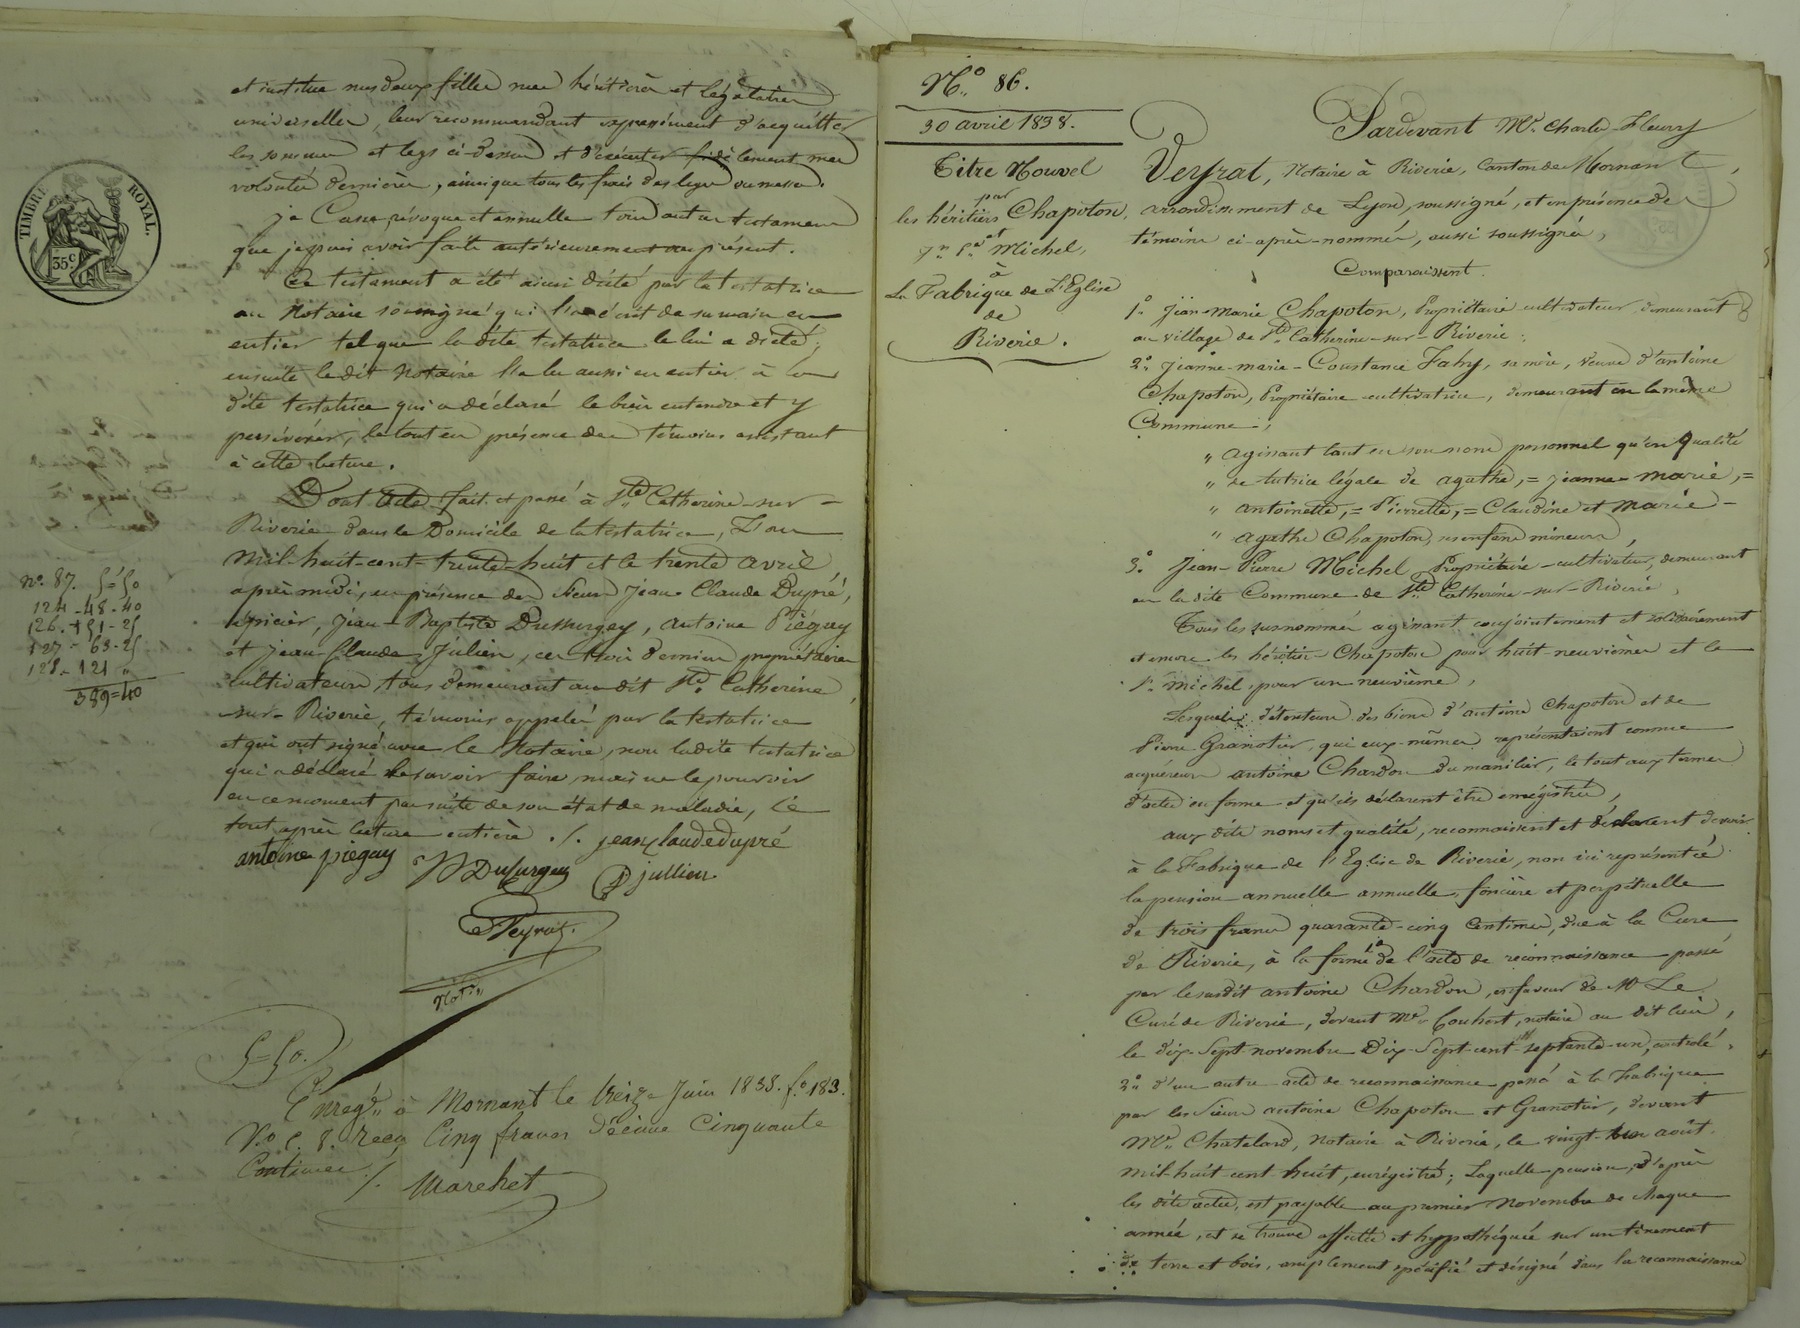 et institue mes deux filles mes héritières et légataires
universelles, leur recommandant expressément d'acquitter
les sommes et legs ci-dessus et d'exécuter fidèlement mes
volontés dernières, ainsi que tous les frais des legs
je Casse, révoque et annulle tous autres testamens
que je puis avoir faits antérieurement au présent.
Ce testament a été ainsi dicté par la testatrice
au Notaire soussigné qui l'a écrit de sa main en
entier tel que la dite testatrice le lui a dicté;
ensuite le dit Notaire l'a lu aussi en entier à la
dite testatrice qui a déclaré le bien entendre et y
persévérer, le tout en présence des témoins assistant
à cette lecture.
Dont acte fait et passé à Ste. Catherine-sur-
Riverie dans le Domicile de la testatrice, L'an
mil-huit-cent-trente-huit et le trente avril
après midi, en présence des Sieurs Jean-Claude Dupré,
épicier, Jean-Baptiste Dussurgey, antoine Piégay
et Jean Claude Julien, ces trois derniers propriétaires
cultivateurs, tous demeurant au dit Ste. Catherine
-sur-Riverie, témoins appelés par la testatrice
et qui ont signé avec le Notaire, non ladite testatrice
qui a déclaré le savoir faire, mais ne le pouvoir
en ce moment par suite de son état de maladie, le
tout après lecture entière ./. jean claude dupré
antoine piegay JB Dusurgey jullien
Veyrat
Notre.
5=50.
Enregé. à Mornant le treize Juin 1838. fo. 183.
Vo. C. 8. reçu Cinq francs décime Cinquante
Centimes ./. Marchet
TIMBRE ROYAL.
35c
No. 87. 5=50
124-48-40
126.-151-25
127-63-25
128-121 "
389=40
No. 86.
30 avril 1838.
Titre Nouvel
par
les héritiers Chapoton,
et
Jn. Pre. Michel,
à
La Fabrique de L'Eglise
de
Riverie.
Pardevant Me. Charles Fleury
Veyrat, Notaire à Riverie, Canton de Mornant,
arrondissement de Lyon, soussigné, et en présence des
témoins ci-après-nommés, aussi soussignés,
Comparaissent.
1o. Jean-marie Chapoton, Propriétaire cultivateur demeurant
au village de Ste. Catherine-sur-Riverie;
2o. Jeanne-marie-Constance Fahy, sa mère, veuve d'antoine
Chapoton, Propriétaire-cultivatrice, demeurant en la même
Commune;
" agissant tant en son nom personnel qu'en qualité
" de tutrice légale de agathe,= jeanne-marie,=
" antoinette,= Pierrette,= Claudine et Marie-
" agathe Chapoton, ses enfans mineurs,
3o. Jean-Pierre Michel, Propriétaire-cultivateur, demeurant
en la dite Commune de Ste. Catherine-sur-Riverie,
Tous les surnommés agissant conjointement et solidairement
et encore les héritiers Chapoton pour huit-neuvièmes et le
Sr. Michel, pour un neuvième,
Lesquels, détenteurs des biens d'antoine Chapoton et de
Pierre Granotier, qui eux-mêmes représentaient comme
acquéreurs antoine Chardon du manilier, le tout aux termes
d'actes en forme et qu'ils déclarent être enregistrés,
aux dits noms et qualités, reconnaissent et déclarent devoir
à la Fabrique de l'Eglise de Riverie, non ici représentée
la pension annuelle annuelle, foncière et perpétuelle
de trois francs quarante-cinq Centimes, due à la Cure
de Riverie, à la forme 1o. de l'acte de reconnaissance passé
par le susdit antoine Chardon, en faveur de Mr Le
Curé de Riverie, devant Me. Couhert, notaire au dit lieu,
le dix-sept novembre Dix-sept-cent-septante-un, contrôlé,
2o. d'un autre acte de reconnaissance passé à la Fabrique
par les Sieurs antoine Chapoton et Granotier, devant
Me. Chatelard, Notaire à Riverie, le vingt- août
mil-huit-cent-huit, enregistré; Laquelle pension, d'après
les dits actes, est payable au premier Novembre de chaque
année, et se trouve affectée et hypothéquée sur un tènement
de terre et bois, amplement spécifié et désigné dans la reconnaissance